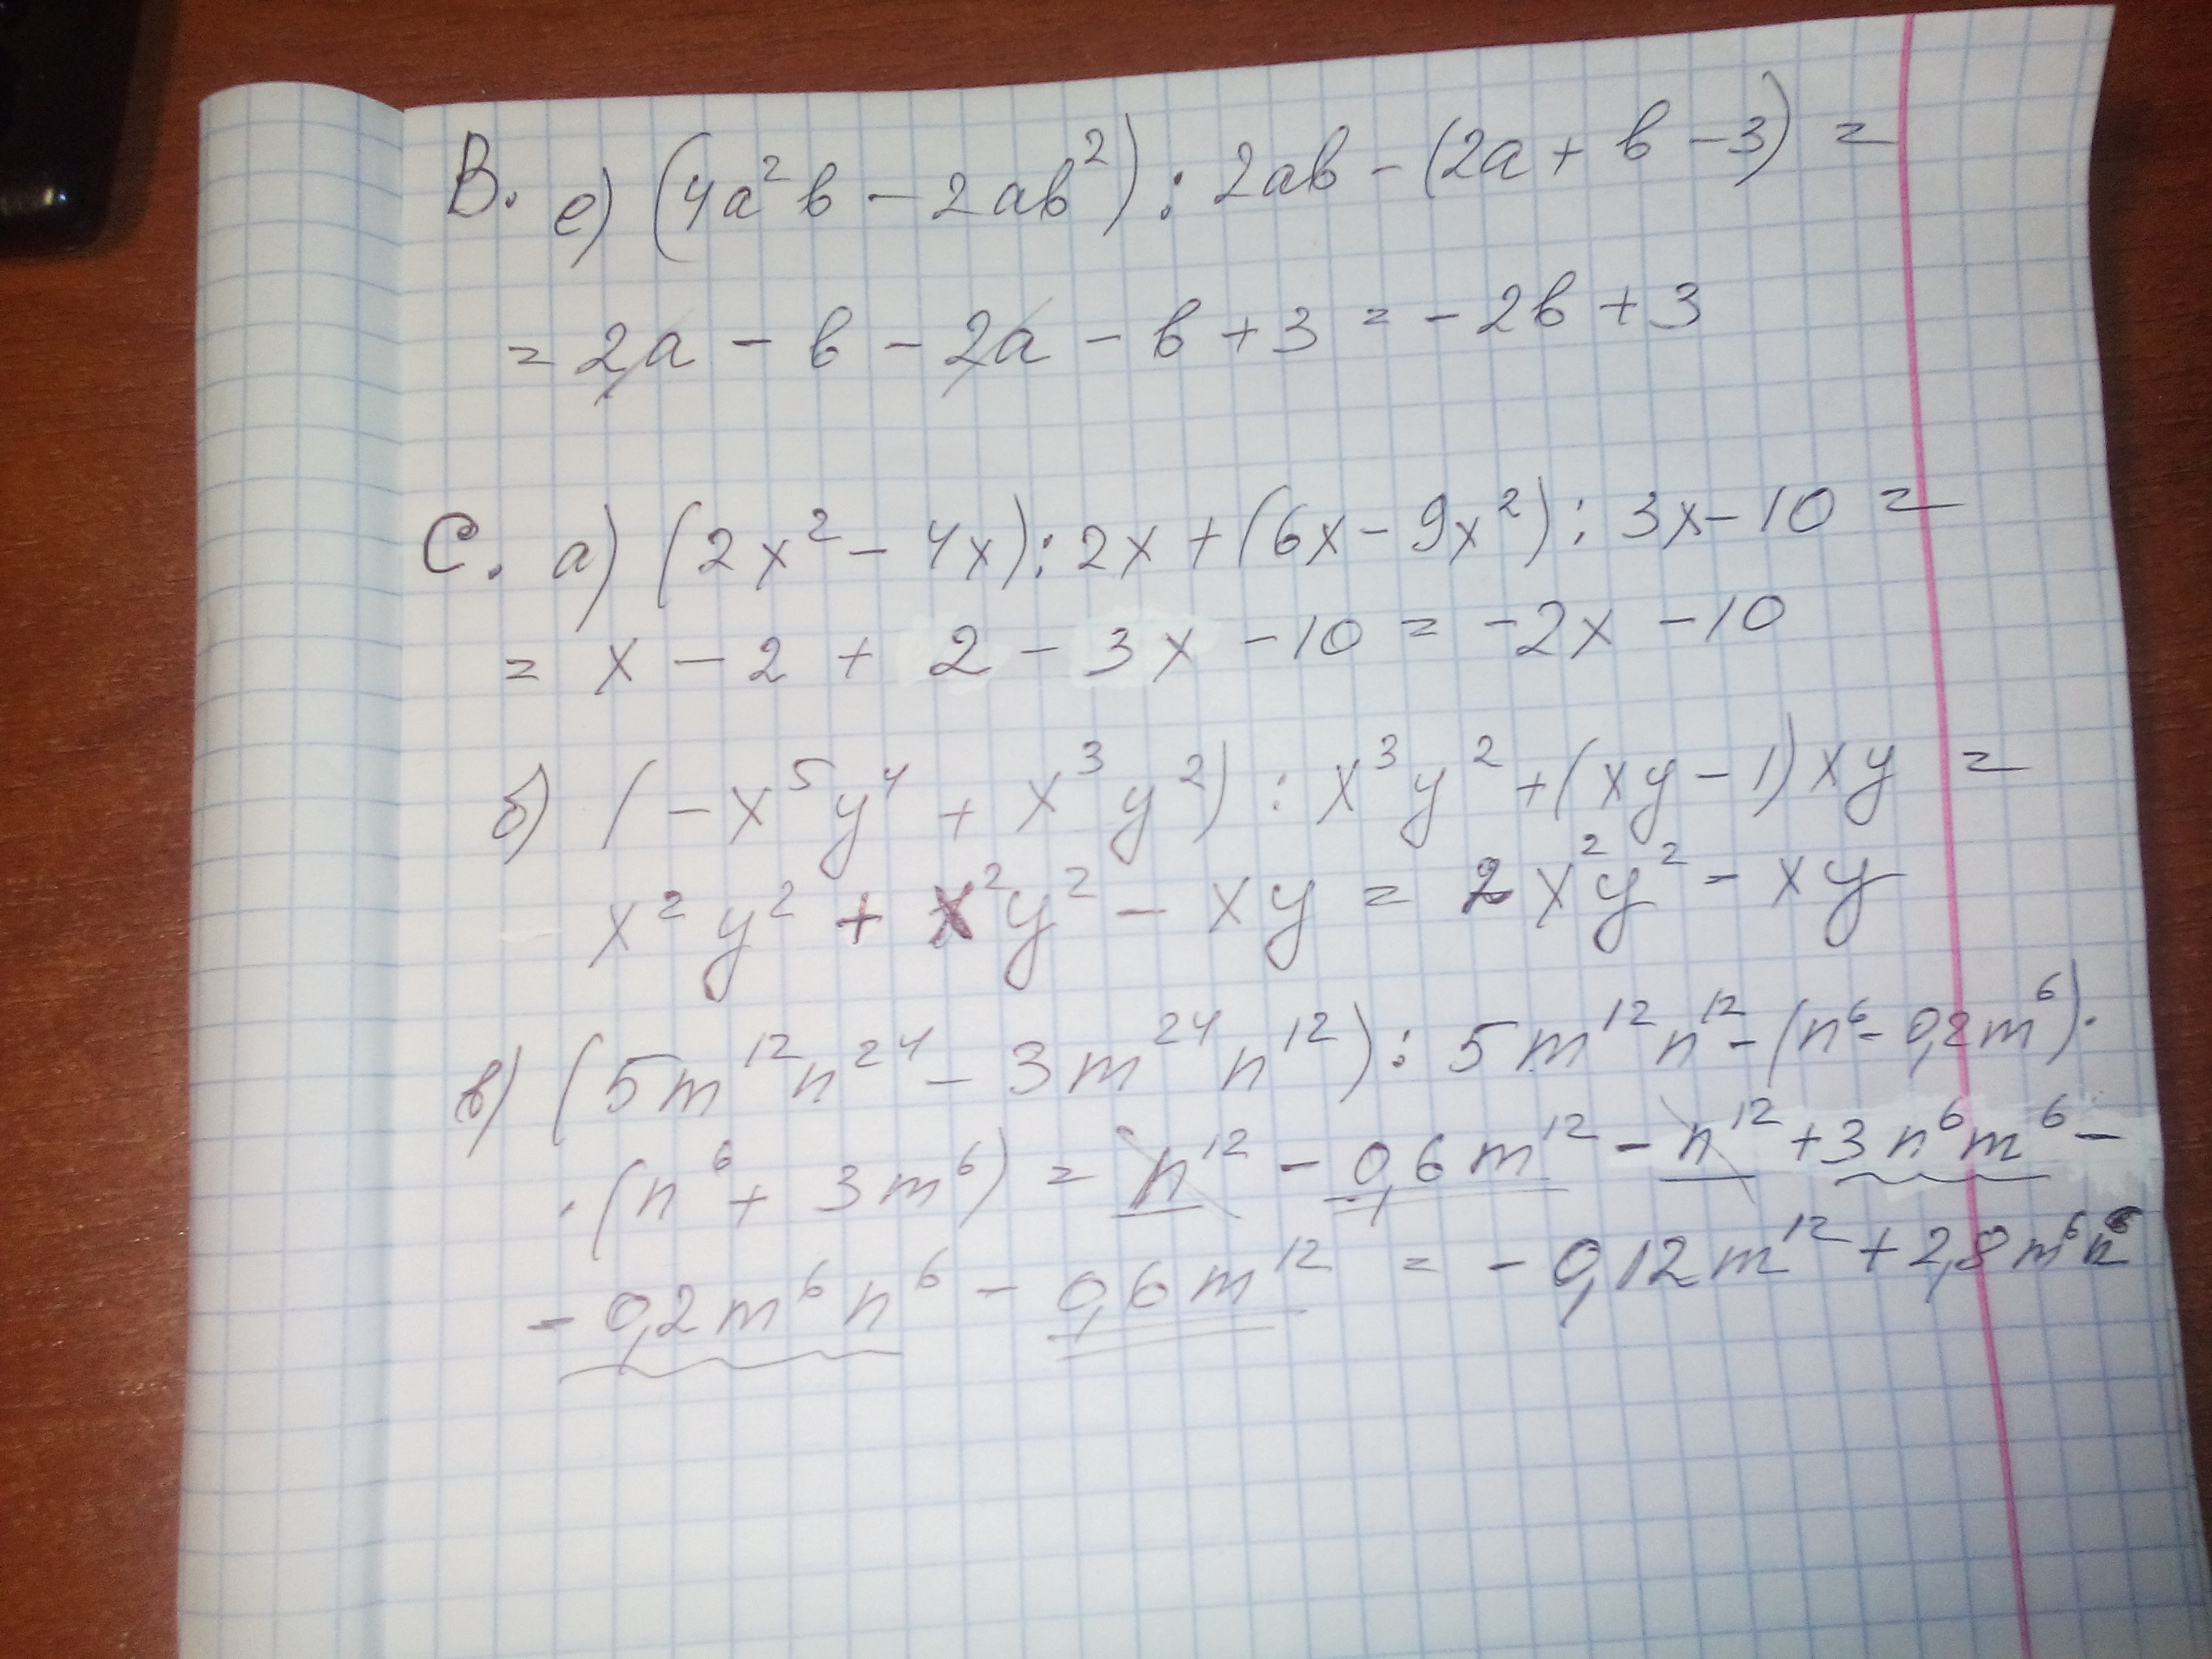 В. е) (4a²b − 2ab²) : 2ab − (2a + b − 3) =
= 2a − b − 2a − b + 3 = −2b + 3
С. а) (2x² − 4x) : 2x + (6x − 9x²) : 3x − 10 =
= x − 2 + 2 − 3x − 10 = −2x − 10
б) (−x⁵y⁴ + x³y²) : x³y² + (xy − 1)xy =
x²y² + x²y² − xy = 2x²y² − xy
в) (5m¹²n²⁴ − 3m²⁴n¹²) : 5m¹²n¹² − (n⁶ − 0,2m⁶) ·
· (n⁶ + 3m⁶) = n¹² − 0,6m¹² − n¹² + 3n⁶m⁶ −
− 0,2m⁶n⁶ − 0,6m¹² = −0,12m¹² + 2,8m⁶n⁶